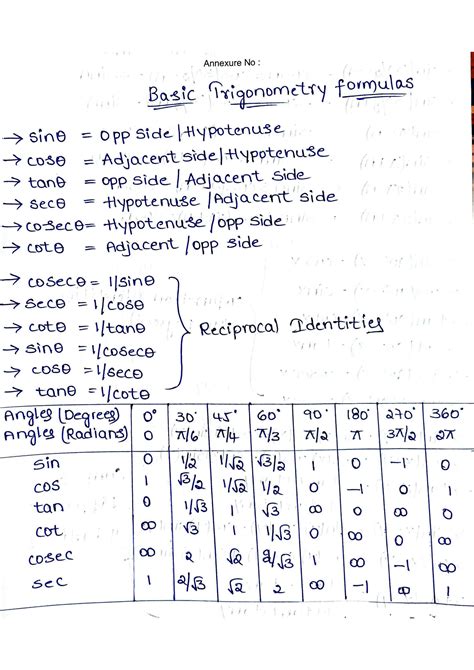 Annexure No :
Basic Trigonometry formulas
→ sinθ = opp side / Hypotenuse
→ cosθ = Adjacent side / Hypotenuse
→ tanθ = opp side / Adjacent side
→ secθ = Hypotenuse / Adjacent side
→ cosecθ = Hypotenuse / opp side
→ cotθ = Adjacent / opp side
→ cosecθ = 1/sinθ
→ secθ = 1/cosθ
→ cotθ = 1/tanθ
→ sinθ = 1/cosecθ
→ cosθ = 1/secθ
→ tanθ = 1/cotθ
Reciprocal Identities
Angles (Degrees) 0° 30° 45° 60° 90° 180° 270° 360°
Angles (Radians) 0 π/6 π/4 π/3 π/2 π 3π/2 2π
sin 0 1/2 1/√2 √3/2 1 0 -1 0
cos 1 √3/2 1/√2 1/2 0 -1 0 1
tan 0 1/√3 1 √3 ∞ 0 ∞ 0
cot ∞ √3 1 1/√3 0 ∞ 0 ∞
cosec ∞ 2 √2 2/√3 1 ∞ -1 ∞
sec 1 2/√3 √2 2 ∞ -1 ∞ 1